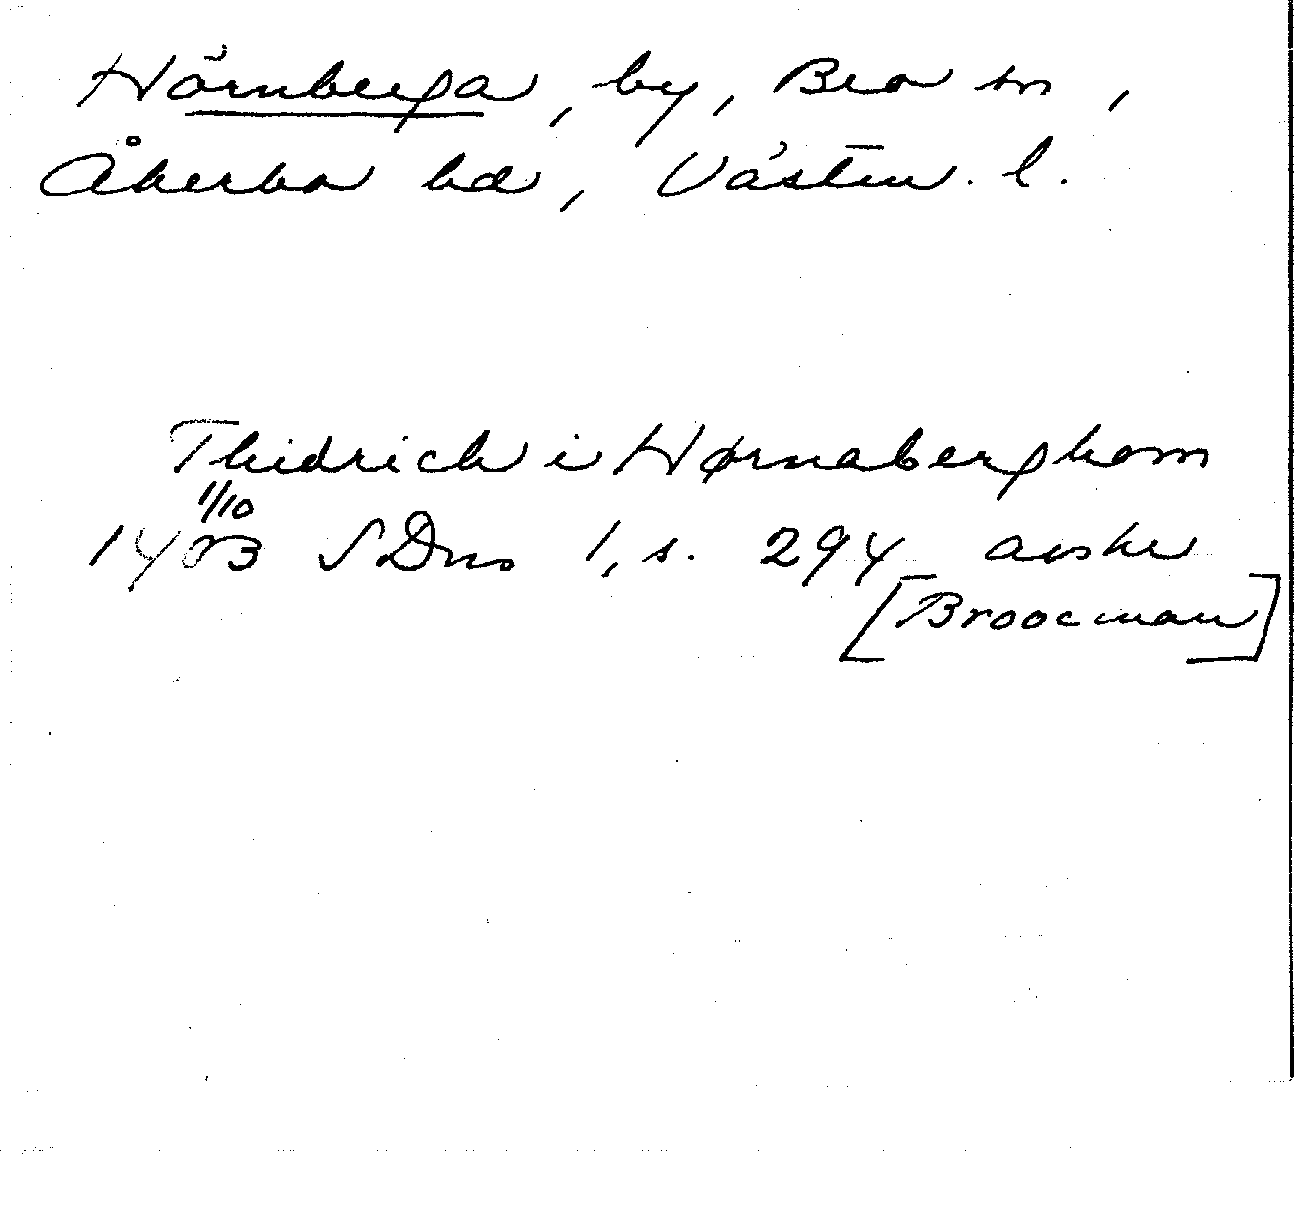 Hörnberga, by, Bro sn,
Åkerbo hd, Västm. l.
Thidrich i Hørnaberghom
1/10
1403 SDns 1, s. 294 avskr
[Broocman]